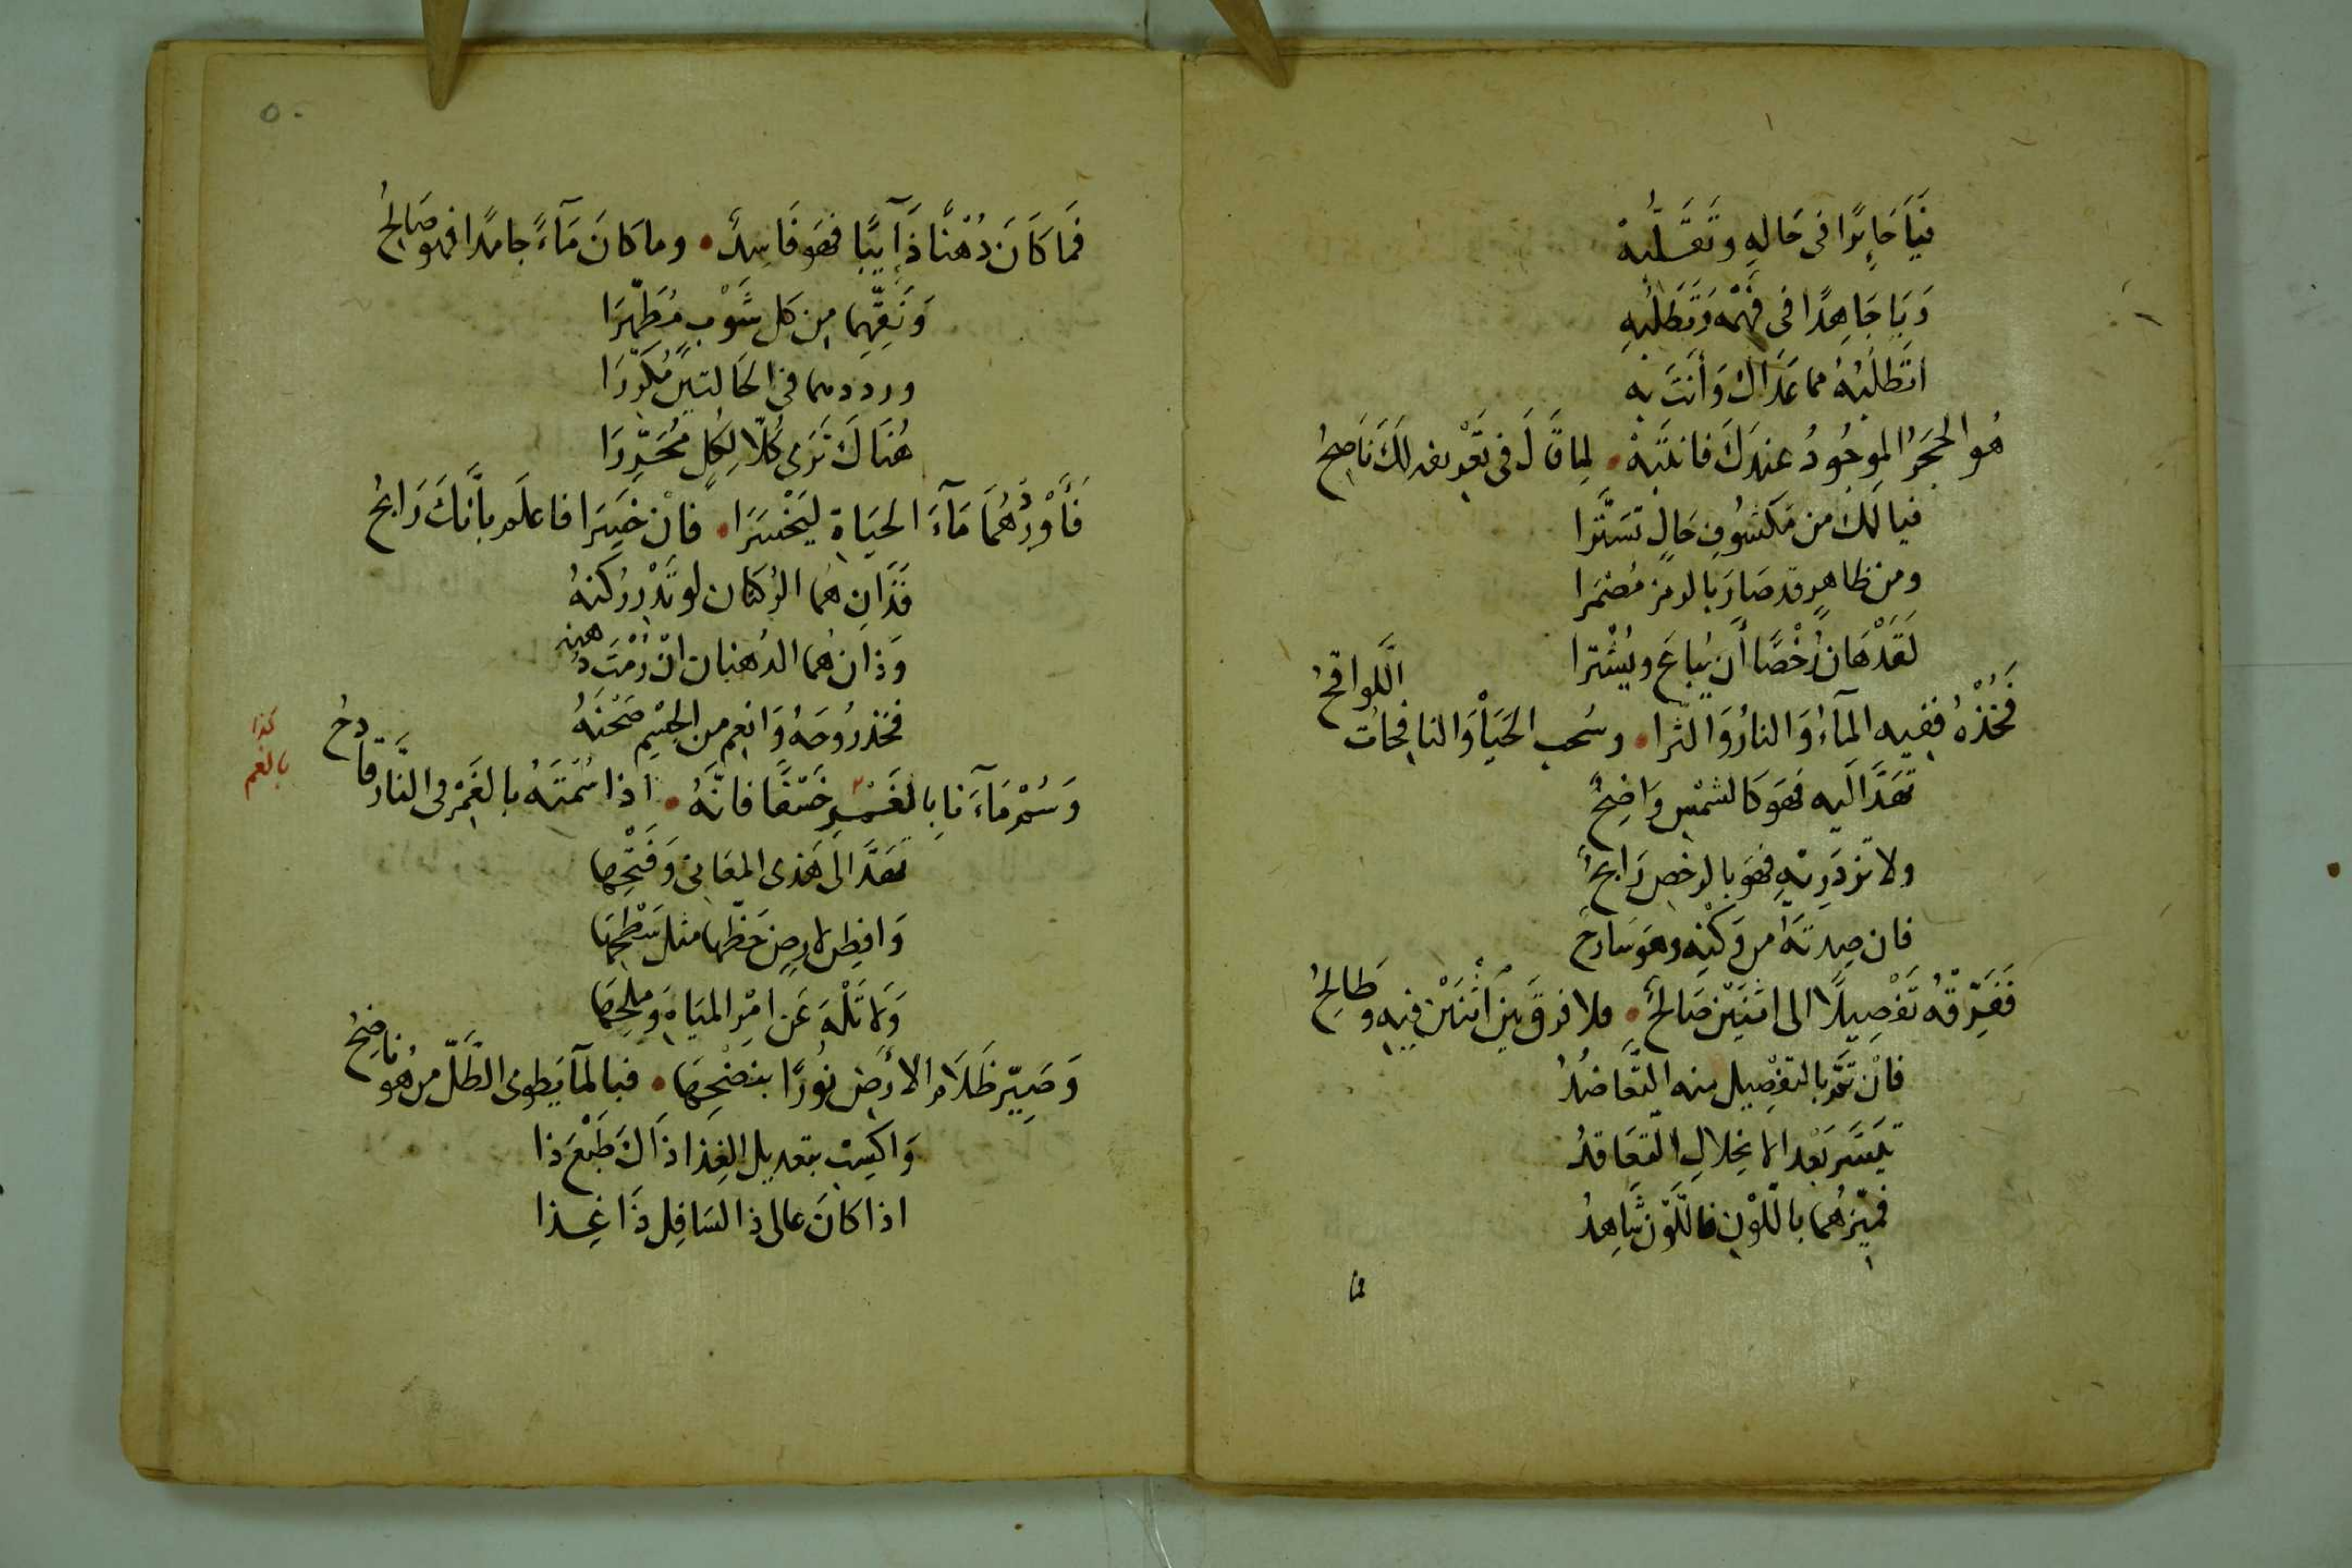 فَيَا حَايِرًا فى حَالِهِ وتَقَلُّبِهْ
وَيَا جَاهِدًا فى فَهْمِهِ وَتَطَلُّبِهِ
اَتَطْلُبُهُ مما عَدَاكَ وَأَنتَ بِهِ
هُو الحجَرُ الموجُودُ عندَكَ فانتَبِهْ • لِمَا قَالَ فى تَعْويضه لَكَ نَاصِحُ
فيالَكَ من مَكشُوفِ حَالٍ تَسَتَّرَا
ومن ظاهِرٍ قد صَارَ بالرمز مُضمَرا
لَقَدْ هَانَ رُخْصًا أَن يُبَاعَ ويُشْترا
فَخُذْهُ ففِيهِ المَآءُ وَالنارُ وَالثَّرا • وسُحب الحَيَا وَالنافِحَاتُ اللَّواقحُ
تَهَدَّ اليه فَهَوَ كَالشمْسِ وَاضِحٌ
ولا تزدَرِيْهِ فهَوَ بالرخصِ رَابحُ
فان صِدتَهُ من وَكْنِه وهو سَارِحَ
فَفَرِّقهُ تَفْصِيلًا الى اثنَيْن صَالحٌ • فلا فرقَ بين اثنَيْن فيه وطَالحُ
فانْ تَمَّ بالتفْصِيل منه التَّعَاضُدُ
تيَسَّر بَعْدَ الانحِلالِ التَّعَاقدُ
فميّزهُما باللّوْنِ فاللَّوْن شَاهِدُ
فما
٥٠
فَمَا كَانَ دُهْنًا ذَآيبًا فهَوَ فَاسِدٌ • وما كانَ مَآءً جامدًا فهو صَالحُ
وَنَقِّهِما مِن كل شَوْبٍ مُطَهِّرَا
ورددهما فى الحَالَتين مُكَرِّرَا
هُنَاكَ تَرَى كُلًّا لِكُلٍّ مُحَرِّرَا
فَأَوْرِدْهُمَا مَآءَ الحَيَاةِ ليَخْسَرَا • فانْ خَسِرَا فاعلَم بأنَّكَ رَابحُ
فَذَانِ هُمَا الرُكنَان لو تَدْرِ رُكنَهُ
وَذانِ هُما الدُهنانِ انْ رُمْتَ دهنه
فخذ رُوحَهُ وَانعِم من الجِسْم صَحْنَهُ
وَسُمْ مَآءَنا بِالغَمْرِ خَسْفًا فانَّهُ • اذا سُمْتَهُ بالغَمْرِ فى النَّار قَادحُ
كذا
بالغم
تَهَدَّ الَى هَذى المعَانى وَفَتْحِها
وَافطِن لارضٍ حَظّها مثل سَطْحِهَا
وَلا تَلْهَ عَن امْرِ المِيَاهِ وَمِلحِهَا
وَصَيِّر ظَلَام الارْض نُورًا بنضْحِهَا • فبالمآ يَطوى الظِّلّ من هُو ناضِحُ
وَاكسِبْ بتعديل الغِذا ذَاكَ طَبْعَ ذا
اذا كانَ عالى ذا لسَافِل ذَا غِذا